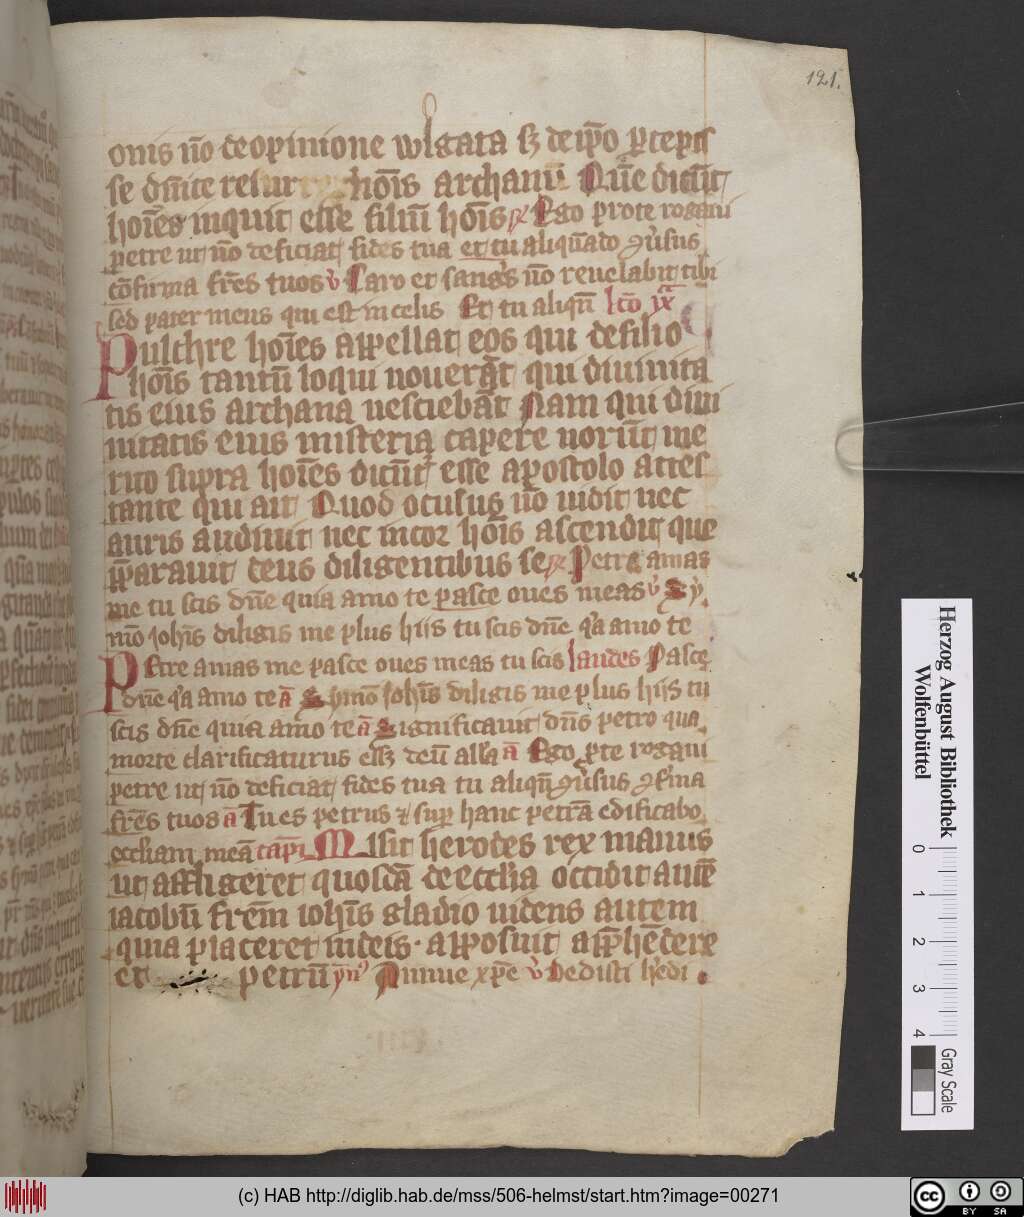 121.
onis nō de opinione wlgata sz de ipo
se dnice archanū Que dicūt
hoīes inquit esse filiū hoīs Ego pro te rogaui
petre ut nō deficiat fides tua et tu aliqūado
cōfirma frēs tuos Caro et sangs nō reuelabit tibi
sed pater meus qui est in celis Et tu aliqn̄ lcō
Pulchre hoīes appellat eos qui de filio
hoīs tantū loqui nouerāt qui diuinita
tis eius archana nesciebāt Nam qui diui
nitatis eius misteria capere norūt me
rito supra hoīes dicūt esse apostolo attes
tante qui ait Quod oculus nō uidit nec
auris audiuit nec in cor hoīs ascendit que
pparauit deus diligentibus se Petre amas
me tu scis dn̄e quia amo te pasce oues meas Sy
mō iohīs diligis me plus hiis tu scis dn̄e qa amo te
Petre amas me pasce oues meas tu scis laudes Pasce
dn̄e qa amo te ā Symō iohīs diligis me plus hiis tu
scis dn̄e quia amo te ā Significauit dn̄s petro qua
morte clarificaturus deū alla ā Ego p te rogaui
petre ut nō deficiat fides tua tu aliqn̄
frēs tuos ā Tu es petrus sup hanc petrā edificabo
ecclīam meā capi Misit herodes rex manus
ut affligeret quosdā de ecclīa occidit
iacobū frēm iohīs gladio uidens autem
quia placeret iudeis apposuit apphēdere
et petrū Dedisti
Herzog August Bibliothek
Wolfenbüttel
0 1 2 3 4
Gray Scale
(c) HAB http://diglib.hab.de/mss/506-helmst/start.htm?image=00271
cc BY SA